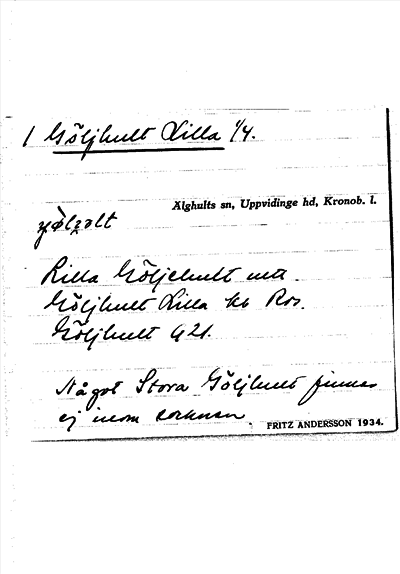 1 Göljhult Lilla 1/4.
Älghults sn, Uppvidinge hd, Kronob. l.
Lilla Göljehult mtl.
Göljhult Lilla kb Ros.
Göljhult G 21.
Något Stora Göljhult finnes
ej inom socknen.
FRITZ ANDERSSON 1934.